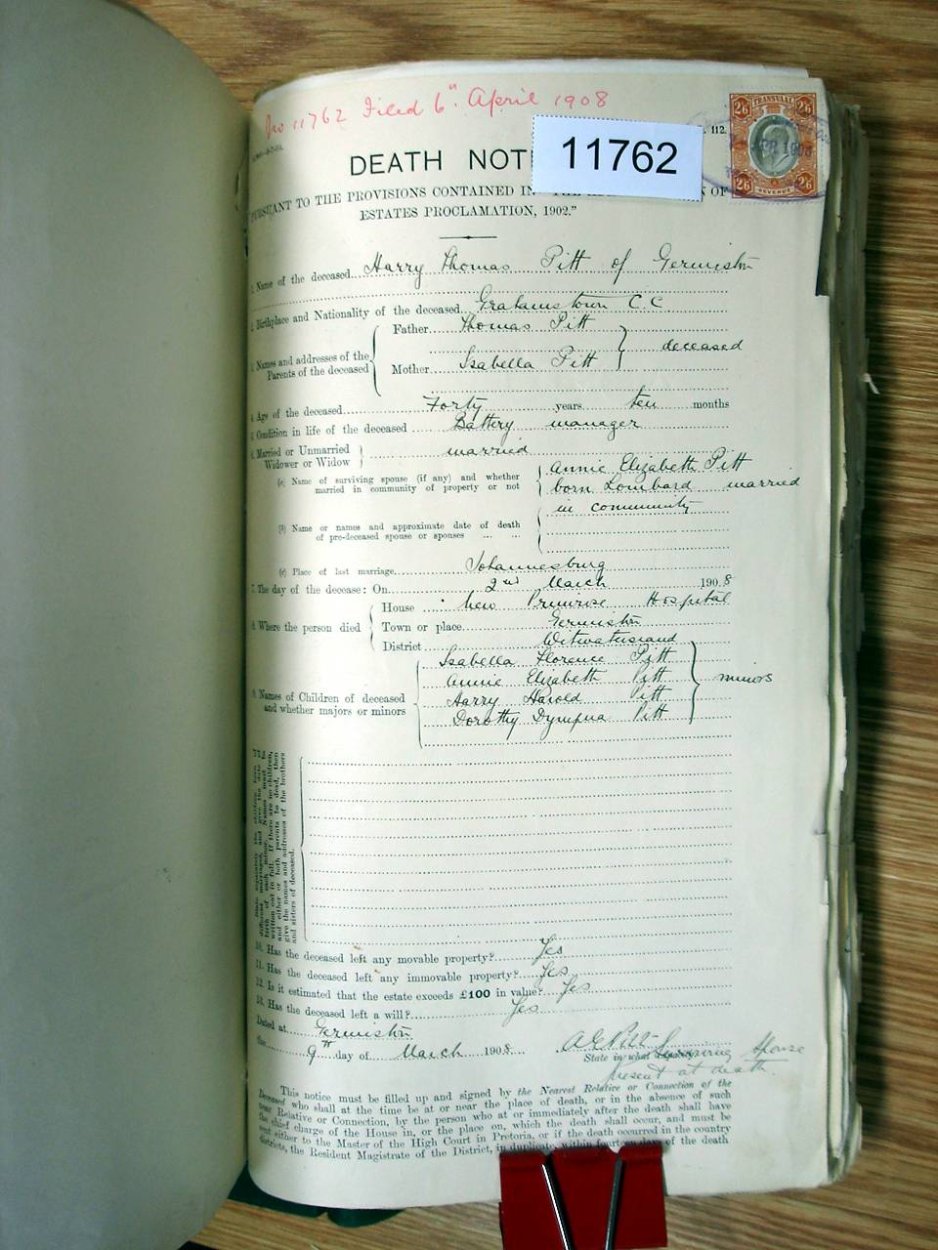 No 11762 Filed 6" April 1908
11762
112.
2/6 TRANSVAAL 2/6
APR 1908
2/6 REVENUE 2/6
DEATH NOT
PURSUANT TO THE PROVISIONS CONTAINED IN "THE OF
ESTATES PROCLAMATION, 1902."
1. Name of the deceased Harry Thomas Pitt of Germiston
2. Birthplace and Nationality of the deceased Grahamstown C.C
3. Names and addresses of the Parents of the deceased
Father Thomas Pitt
Mother Isabella Pitt
deceased
4. Age of the deceased Forty years ten months
5. Condition in life of the deceased Battery manager
6. Married or Unmarried
Widower or Widow
married
(a) Name of surviving spouse (if any) and whether
married in community of property or not
Annie Elizabeth Pitt
born Lombard married
in community
(b) Name or names and approximate date of death
of pre-deceased spouse or spouses
(c) Place of last marriage Johannesburg
7. The day of the decease: On 2nd March 1908
8. Where the person died
House New Primrose Hospital
Town or place Germiston
District Witwatersrand
9. Names of Children of deceased
and whether majors or minors
Isabella Florence Pitt
Annie Elizabeth Pitt
Harry Harold Pitt
Dorothy Dympna Pitt
minors
written out in full. If there are no children,
and either or both parents be dead, then
give the names and addresses of the brothers
and sisters of deceased.
10. Has the deceased left any movable property? Yes
11. Has the deceased left any immovable property? Yes
12. Is it estimated that the estate exceeds £100 in value? Yes
13. Has the deceased left a will? Yes
Dated at Germiston
the 9th day of March 1908
A E Pitt
State in what Surviving Spouse
present at death.
This notice must be filled up and signed by the Nearest Relative or Connection of the
Deceased who shall at the time be at or near the place of death, or in the absence of such
near Relative or Connection, by the person who at or immediately after the death shall have
the chief charge of the House in, or the place on, which the death shall occur, and must be
sent either to the Master of the High Court in Pretoria, or if the death occurred in the country
districts, the Resident Magistrate of the District, in duplicate within fourteen days of the death